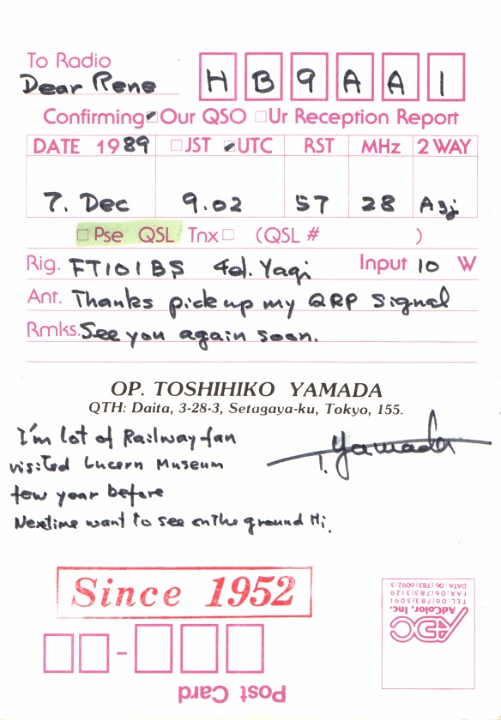 To Radio
Dear Rene HB9AAI
Confirming ☑Our QSO □Ur Reception Report
DATE 1989 □JST ☑UTC RST MHz 2 WAY
7. Dec 9.02 57 28
□Pse QSL Tnx□ (QSL # )
Rig. FT101BS 4el. Yagi Input 10 W
Ant. Thanks pick up my QRP Signal
Rmks. See you again soon.
OP. TOSHIHIKO YAMADA
QTH: Daita, 3-28-3, Setagaya-ku, Tokyo, 155.
I'm lot of Railway fan
visited Lucern Museum
few year before
Nextime want to see on the ground Hi.
T. Yamada
Since 1952
ADC
AdColor, Inc.
TEL:06(783)3091
FAX:06(783)3120
DATA:06(783)6092/3
Post Card